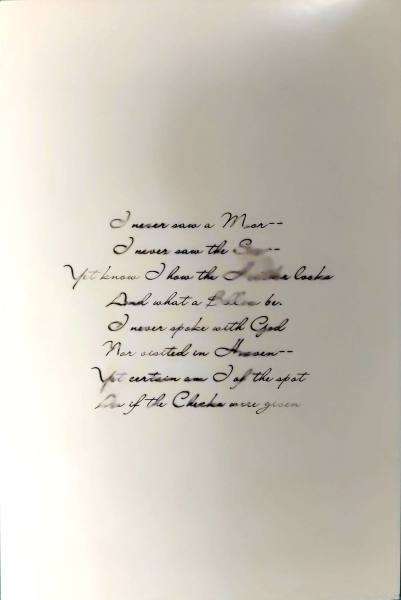 I never saw a Moor--
I never saw the Sea--
Yet know I how the Heather looks
And what a Billow be.
I never spoke with God
Nor visited in Heaven--
Yet certain am I of the spot
As if the Checks were given